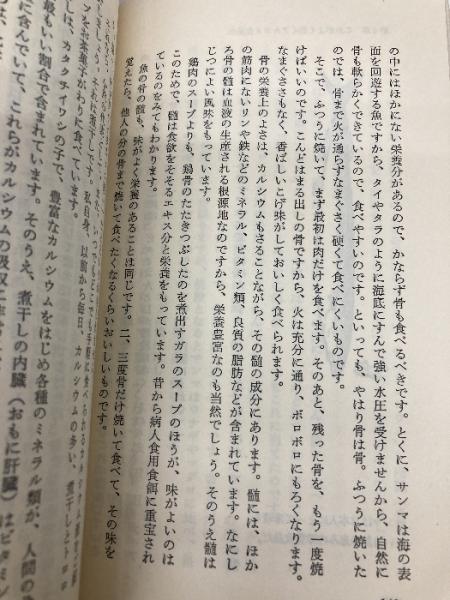 の中にはほかにない栄養分があるので、かならず骨も食べるべきです。とくに、サンマは海の表
面を回遊する魚ですから、タイやタラのように海底にすんで強い水圧を受けませんから、自然に
骨も軟らかくできているので、食べやすいのです。といっても、やはり骨は骨。ふつうに焼いた
のでは、骨まで火が通らずなまぐさく硬くて食べにくいものです。
そこで、ふつうに焼いて、まず最初は肉だけを食べます。そのあと、残った骨を、もう一度焼
けばいいのです。こんどはまる出しの骨ですから、火は充分に通り、ボロボロにもろくなります。
なまぐささもなく、香ばしいこげ味がしておいしく食べられます。
骨の栄養上のよさは、カルシウムもさることながら、その髄の成分にあります。髄には、ほか
の筋肉にないリンや鉄などのミネラル、ビタミン類、良質の脂肪などが含まれています。なにし
ろ骨の髄は血液の生産される根源地なのですから、栄養豊富なのも当然でしょう。そのうえ髄は
じつによい風味をもっています。
鶏肉のスープよりも、鶏骨のたたきつぶしたのを煮出すガラのスープのほうが、味がよいのは
このためで、髄は食欲をそそるエキス分と栄養をもっています。昔から病人食用食餌に重宝され
ているのをみてもわかります。
魚の骨の髄も、味がよく栄養のあることは同じです。二、三度骨だけ焼いて食べて、その味を
覚えたら、他人の分の骨まで焼いて食べたくなるくらいおいしいものです。
いつでもどこでも手軽に食べられる
それは煮干しです。私自身、以前から毎日、カルシウムの多い
お茶菓子がわりに食べています。
は、カタクチイワシの子で、豊富なカルシウムをはじめ各種のミネラル類が、人間の
最もいい割合で含まれています。そのりえ、煮干しの内臓（おもに肝臓）はビタミン
に含んでいて、これらがカルシウムの吸収に